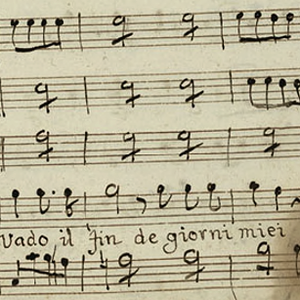 Vado il fin de giorni miei